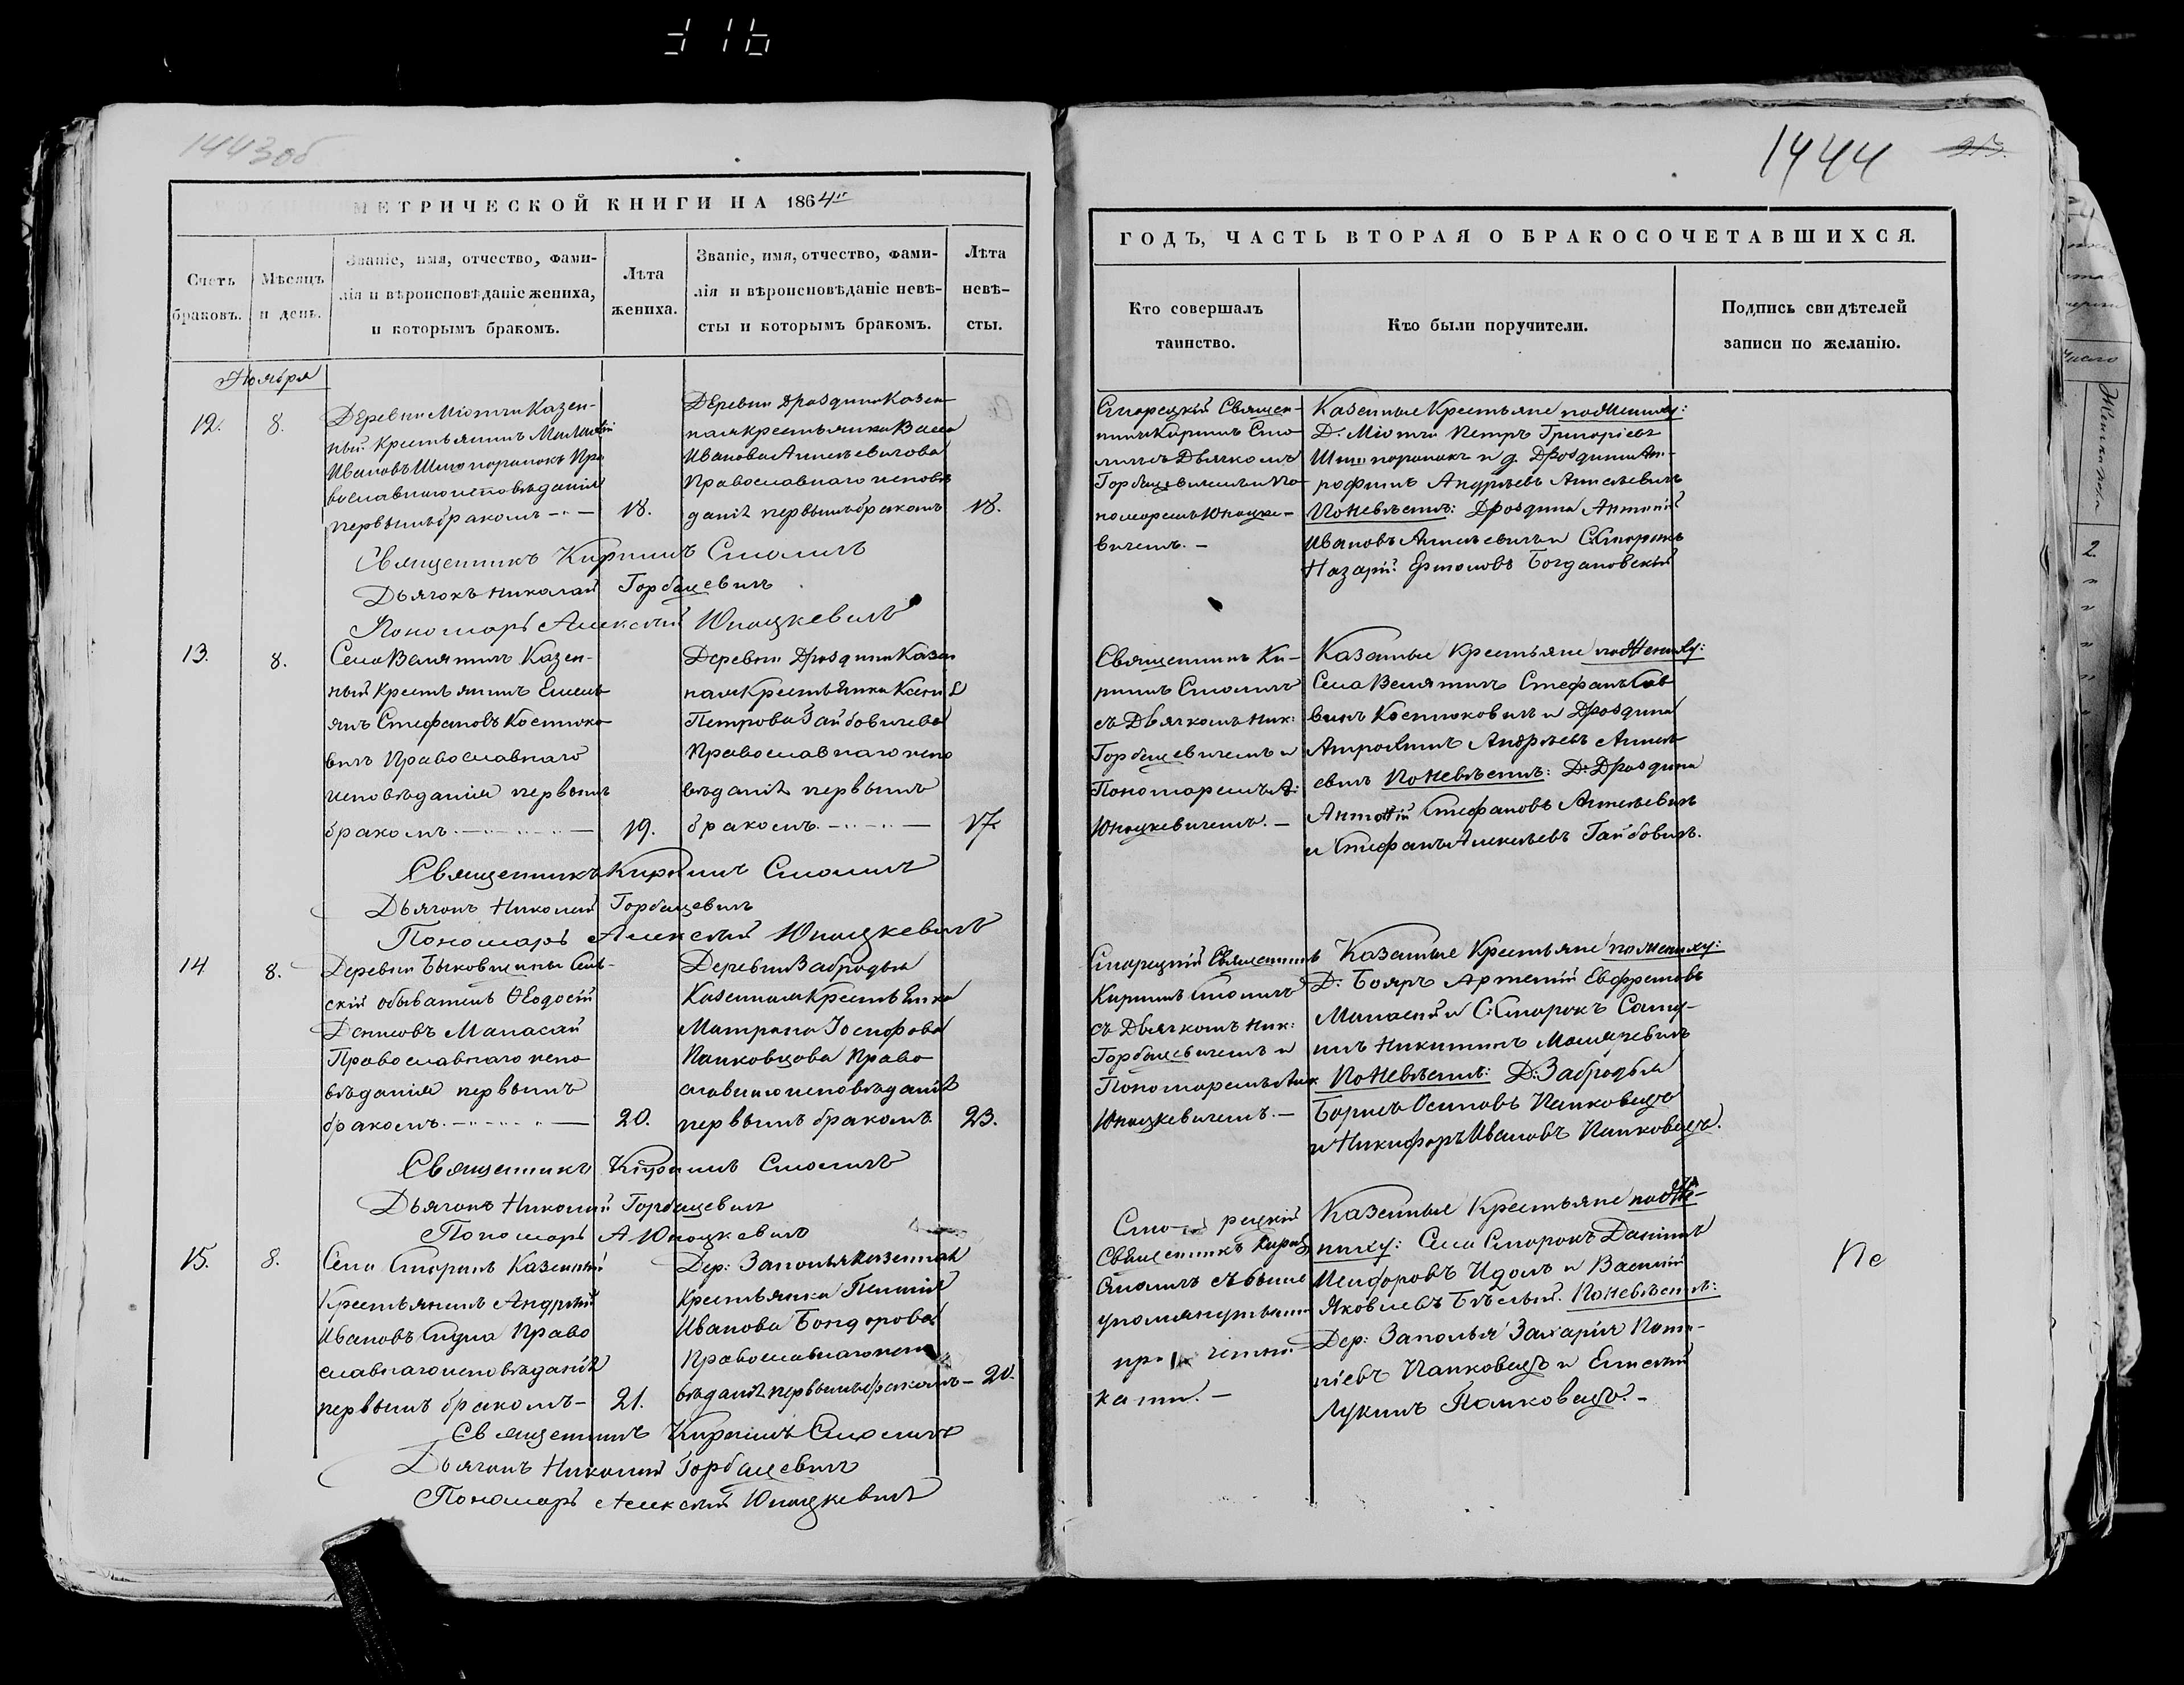 1443об
МЕТРИЧЕСКОЙ КНИГИ НА 1864й
Счетъ браковъ.
Мѣсяцъ и день.
Званіе, имя, отчество, фами-
лія и вѣроисповѣданіе жениха,
и которымъ бракомъ.
Лѣта
жениха.
Званіе, имя, отчество, фами-
лія и вѣроисповѣданіе невѣ-
сты и которымъ бракомъ.
Лѣта
невѣ-
сты.
Ноября
12.
8.
Деревни Казен-
ный Крестьянинъ
Ивановъ Пра
вославнаго исповѣданія
первымъ бракомъ
18.
Деревни Дроздина Казен
ная крестьянка Васса
Иванова
Православнаго исповѣ
данія первымъ бракомъ
18.
Священникъ Кириллъ Смоличъ
Дьячокъ Николай Горбацевичъ
Пономарь Алексѣй Юноцкевичъ
13.
8.
Села Велятичъ Казен-
ный Крестьянинъ Емель
янъ Стефановъ Костюко
вичъ Православнаго
исповѣданія первымъ
бракомъ.
19.
Деревни Дроздина Казен
ная Крестьянка Ксенія
Петрова Гайбовичева
Православнаго испо
вѣданія первымъ
бракомъ.
17.
Священникъ Кириллъ Смоличъ
Дьячокъ Николай Горбацевичъ
Пономарь Алексѣй Юноцкевичъ
14
8.
Деревни Быковщины Сель-
скій обыватель Ѳеодосій
Денисовъ Манасай
Православнаго испо
вѣданія первымъ
бракомъ.
20.
Деревни Забродья
Казенная Крестьянка
Матрона Іосифова
Папковцова Право
славнаго исповѣданія
первымъ бракомъ.
23.
Священникъ Кириллъ Смоличъ
Дьячокъ Николай Горбацевичъ
Пономарь А Юноцкевичъ
15.
8.
Села Казенный
Крестьянинъ Андрей
Ивановъ Право
славнаго исповѣданія
первымъ бракомъ
21.
Дер: Заполья Казенная
Крестьянка
Иванова Бондорова
Православнаго испо
вѣданія первымъ бракомъ
20.
Священникъ Кириллъ Смоличъ
Дьячокъ Николай Горбацевичъ
Пономарь Алексѣй Юноцкевичъ
1444
ГОДЪ, ЧАСТЬ ВТОРАЯ О БРАКОСОЧЕТАВШИХСЯ.
Кто совершалъ
таинство.
Кто были поручители.
Подпись свидѣтелей
записи по желанію.
Сторецкій Священ-
никъ Кириллъ Смо
личъ съ Дьячкомъ
Горбацевичемъ и По
номоремъ Юноцке-
вичемъ.
Казенные Крестьяне по Жениху:
Петръ Григоріевъ
и д. Дроздина
Андреевъ
По Невѣстѣ: Дроздина Антоній
Ивановъ и С. Сторокъ
Назарій Богдановскій
Священникъ Ки-
риллъ Смоличъ
съ Дьячкомъ Ник:
Горбацевичемъ и
Пономоремъ А:
Юноцкевичемъ.
Казенные Крестьяне по Жениху:
Села Велятичъ Стефанъ Сав
винъ Костюковичъ и Дроздина
Андреевъ
По Невѣстѣ: Д: Дроздина
Антоній Стефановъ
и Стефанъ Алексѣевъ Гайбовичъ.
Сторецкій Священникъ
Кириллъ Смоличъ
съ Дьячкомъ Ник:
Горбацевичемъ и
Пономоремъ Алек
Юноцкевичемъ.
Казенные Крестьяне по Жениху:
Д: Бояръ Артемій
и С: Сторокъ
Никитинъ
По Невѣстѣ: Д: Забродья
Борисъ Осиповъ Папковецъ
и Никифоръ Ивановъ Папковецъ.
Сторецкій
Священникъ Кирил
Смоличъ съ выше
упомянутыми
причетни-
ками.
Казенные Крестьяне по Же-
ниху: Села Сторокъ Даніилъ
и Василій
Яковлевъ Бѣлый. По Невѣстѣ:
Дер: Заполья Захарія
Папковецъ и Елисѣй
Лукинъ Папковецъ.
Не